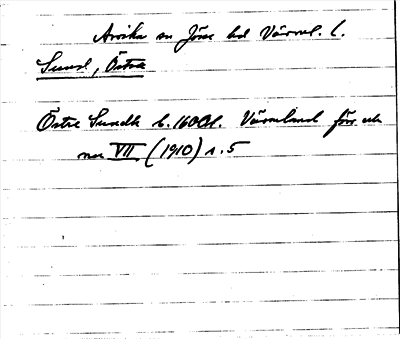 Arvika sn Jösse hd Värml. l.
Sund, Östra
Östre Sundh b. 1600t. Värmland förr och
nu VII (1910) s. 5